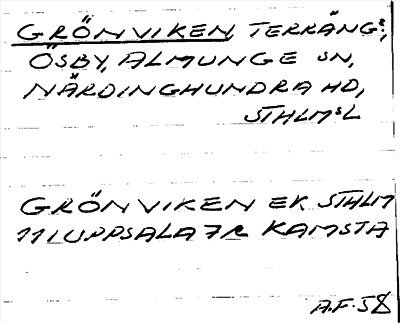 GRÖNVIKEN, TERRÄNGS,
ÖSBY, ALMUNGE SN,
NÄRDINGHUNDRA HD,
STHLMSL
GRÖNVIKEN EK STHLM
111 UPPSALA 7R KAMSTA
A.F. 58